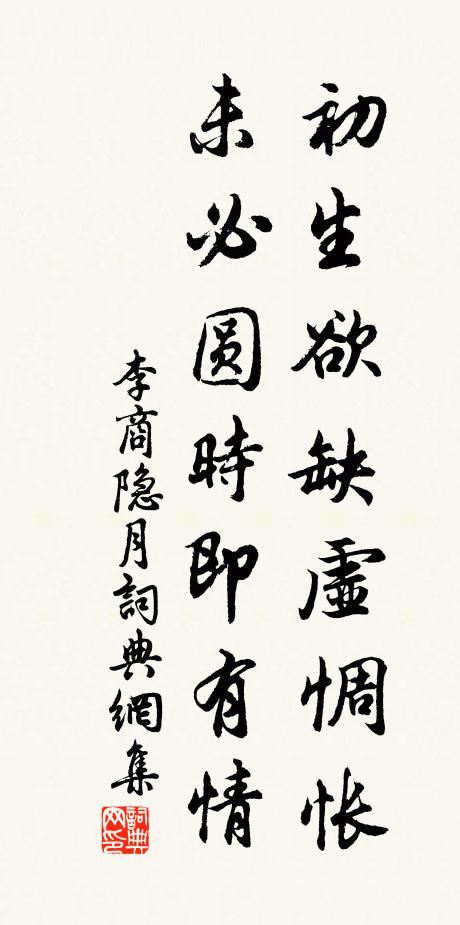 初生欲缺虛惆怅
未必圆時即有情
李商隐月詞典網集
詞典网印